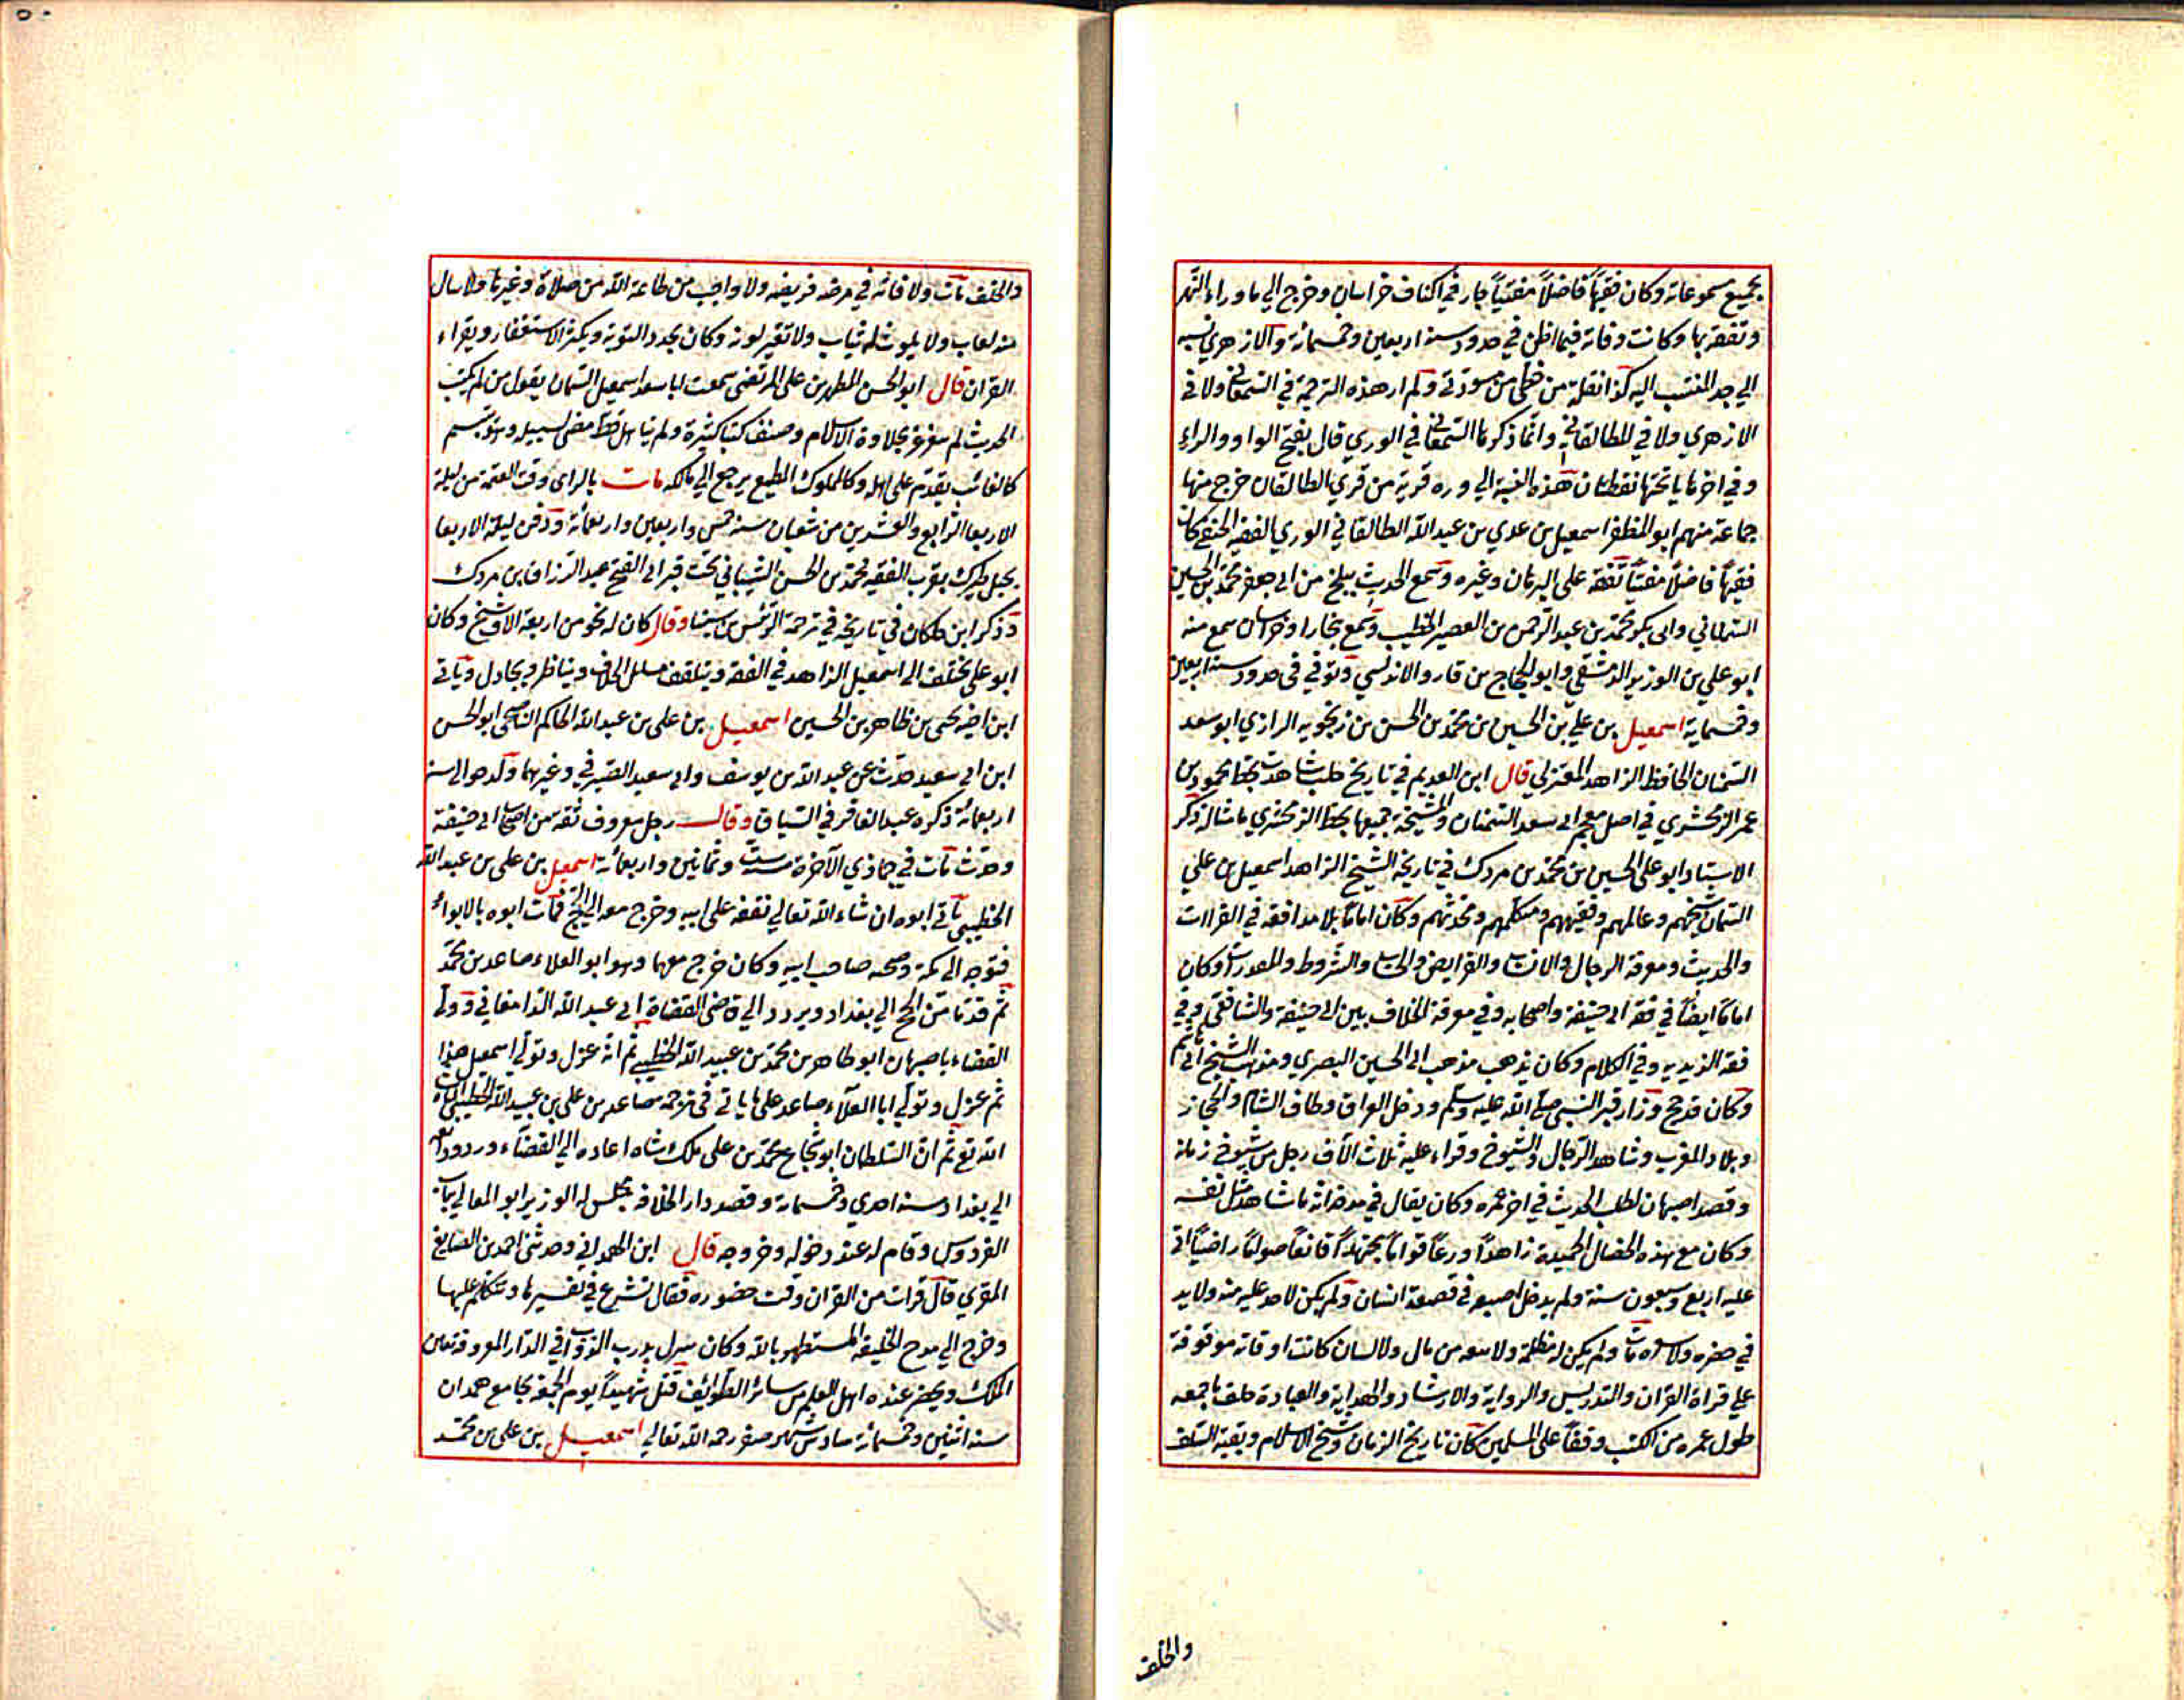 بجميع مسموعاته وكان فقيهاً فاضلاً مفتياً جار في اكناف خراسان وخرج الي ما وراء النهر
وتفقه بها وكانت وفاته فيما اظن في حدود سنة اربعين وخمسمائة والازهري نسبه
الي جد المنتسب اليه كذا نقلته من خطي من مسودتي ولم ار هذه الترجمة في السمعاني ولا في
الازهري ولا في الطالقاني وانما ذكرها السمعاني في الوري قال بفتح الواو والراء
وفي اخرها يا تحتها نقطتان هذه النسبة الي وره قرية من قري الطالقان خرج منها
جماعة منهم ابو المظفر اسمعيل بن عدي بن عبد الله الطالقاني الوري الفقيه الحنفي كان
فقيهاً فاضلاً مفتياً تفقه على البرهان وغيره وسمع الحديث ببلخ من ابي جعفر محمد بن الحسين
السمناني وابي بكر محمد بن عبد الرحمن بن القصير الخطيب وسمع بخارا وخراسان سمع منه
ابو علي بن الوزير الدمشقي وابو الحجاج بن فارو الاندلسي وتوفي في حدود سنة اربعين
وخمسماية اسمعيل بن علي بن الحسين بن محمد بن الحسن بن زنجويه الرازي ابو سعد
السمان الحافظ الزاهد المعتزلي قال ابن العديم في تاريخ حلب شاهدت بخط محمود بن
عمر الزمخشري في اصل معجم ابي سعد السمان والمشيخة جميعها بخط الزمخشري ما مثاله ذكر
الاستاد ابو علي الحسين بن محمد بن مردك في تاريخه الشيخ الزاهد اسمعيل بن علي
السمان شيخهم وعالمهم وفقيههم ومتكلمهم ومحدثهم وكان اماماً بلا مدافعة في القراات
والحديث ومعرفة الرجال والانساب والفرايض والحساب والشروط والمقدرات وكان
اماماً ايضاً في فقه ابي حنيفة واصحابه وفي معرفة الخلاف بين ابي حنيفة والشافعي وفي
فقه الزيديه وفي الكلام وكان يذهب مذهب ابي الحسين البصري ومذهب الشيخ ابي هاشم
وكان قد حج وزار قبر النبي صلي الله عليه وسلم ودخل العراق وطاف الشام والحجاز
وبلاد المغرب وشاهد الرجال والشيوخ وقراء عليه ثلاث الاف رجل من شيوخ زمانه
وقصد اصبهان لطلب الحديث في اخر عمره وكان يقال في مدحه انه ما شاهد مثل نفسه
وكان مع هذه الخصال الحميدة زاهداً ورعاً قواماً مجتهداً قانعاً صواماً راضياً اتى
عليه اربع وسبعون سنة ولم يدخل اصبعه في قصعة انسان ولم يكن لاحد عليه منة ولا يد
في حضره ولا سفره مات ولم يكن له مظلمة ولا تبعة من مال ولا لسان كانت اوقاته موقوفة
علي قراة القران والتدريس والرواية والارشاد والهداية والعبادة خلف ما جمعه
طول عمره من الكتب وقفاً على المسلمين كان تاريخ الزمان وشيخ الاسلام وبقية السلف
والخلف
والخلف مات ولا فاته في مرضه فريضه ولا واجب من طاعة الله من صلاة وغيرها ولا سال
منه لعاب ولا يلوث له ثياب ولا تغير لونه وكان يجدد التوبة ويكثر الاستغفار ويقراء
القران قال ابو الحسن المطهر بن علي المرتضى سمعت ابا سعد اسمعيل السمان يقول من لم يكتب
الحديث لم يتغرغر بحلاوة الاسلام وصنف كتبا كثيرة ولم يتاهل قط مضى لسبيله وهو يتبسم
كالغائب يقدم على اهله وكالمملوك المطيع يرجع الي مالكه مات بالراى وقت العتمة من ليلة
الاربعا الرابع والعشرين من شعبان سنة خمس واربعين واربعمائة ودفن ليلة الاربعا
بجبل طبرك بقرب الفقيه محمد بن الحسن الشيباني تحت قبر ابي الفتح عبد الرزاق بن مردك
وذكر ابن خلكان في تاريخه في ترجمة الرئيس بن سينا وقال كان له نحو من اربعة الاف شيخ وكان
ابو علي يختلف الى اسمعيل الزاهد في الفقه ويتلقف مسائل الخلاف ويناظر ويجادل وياتي
ابن اخيه يحيى بن طاهر بن الحسين اسمعيل بن على بن عبد الله الحاكم الناصحي ابو الحسن
ابن ابي سعيد حدث عن عبد الله بن يوسف وابي سعيد الصيرفي وغيرهما ولد حوالي سنة
اربعمائة ذكره عبد الغافر في السياق وقال رجل معروف ثقة من اصحاب ابي حنيفة
وحدث مات في جمادي الآخرة سنة ست وثمانين واربعمائة اسمعيل بن علي بن عبد الله
الخطيبي ياتي ابوه ان شاء الله تعالى تفقه على ابيه وخرج معه الي الحج فمات ابوه بالابواء
فتوجه الى مكة وصحبه صاحب ابيه وكان خرج معهما وهو ابو العلاء صاعد بن محمد
ثم قدما من الحج الي بغداد ويردد الي قاضي القضاة ابي عبد الله الدامغاني وولي
القضاء باصبهان ابو طاهر بن محمد بن عبيد الله الخطيبي ثم انه عزل وتولي اسمعيل هذا
ثم عزل وتولي ابا العلاء صاعد على ما ياتي في ترجمة صاعد بن علي بن عبيد الله الخطيبي ان شاء
الله تع ثم ان السلطان ابو شجاع محمد بن علي ملك شاه اعاده الي القضاء وردود امعه
الي بغداد سنة احدي وخمسماية وقصد دار الخلافة مجلس له الوزير ابو المعالي بباب
الفردوس وقام له عند دخوله وخروجه قال ابن الهمداني وحدثني احمد بن الصايغ
المقري قال قرات من القران وقت حضوره فقال نشرع في تفسيرها ونتكلم عليها
وخرج الي مدح الخليفة المستظهر بالله وكان ينزل بدرب الدواب في الدار المعروفة بمعين
الملك ويحضر عنده اهل العلم من سائر الطوائف قتل شهيداً يوم الجمعة بجامع همدان
سنة اثنين وخمسمائة سادس شهر صفر رحمه الله تعالي اسمعيل بن علي بن محمد